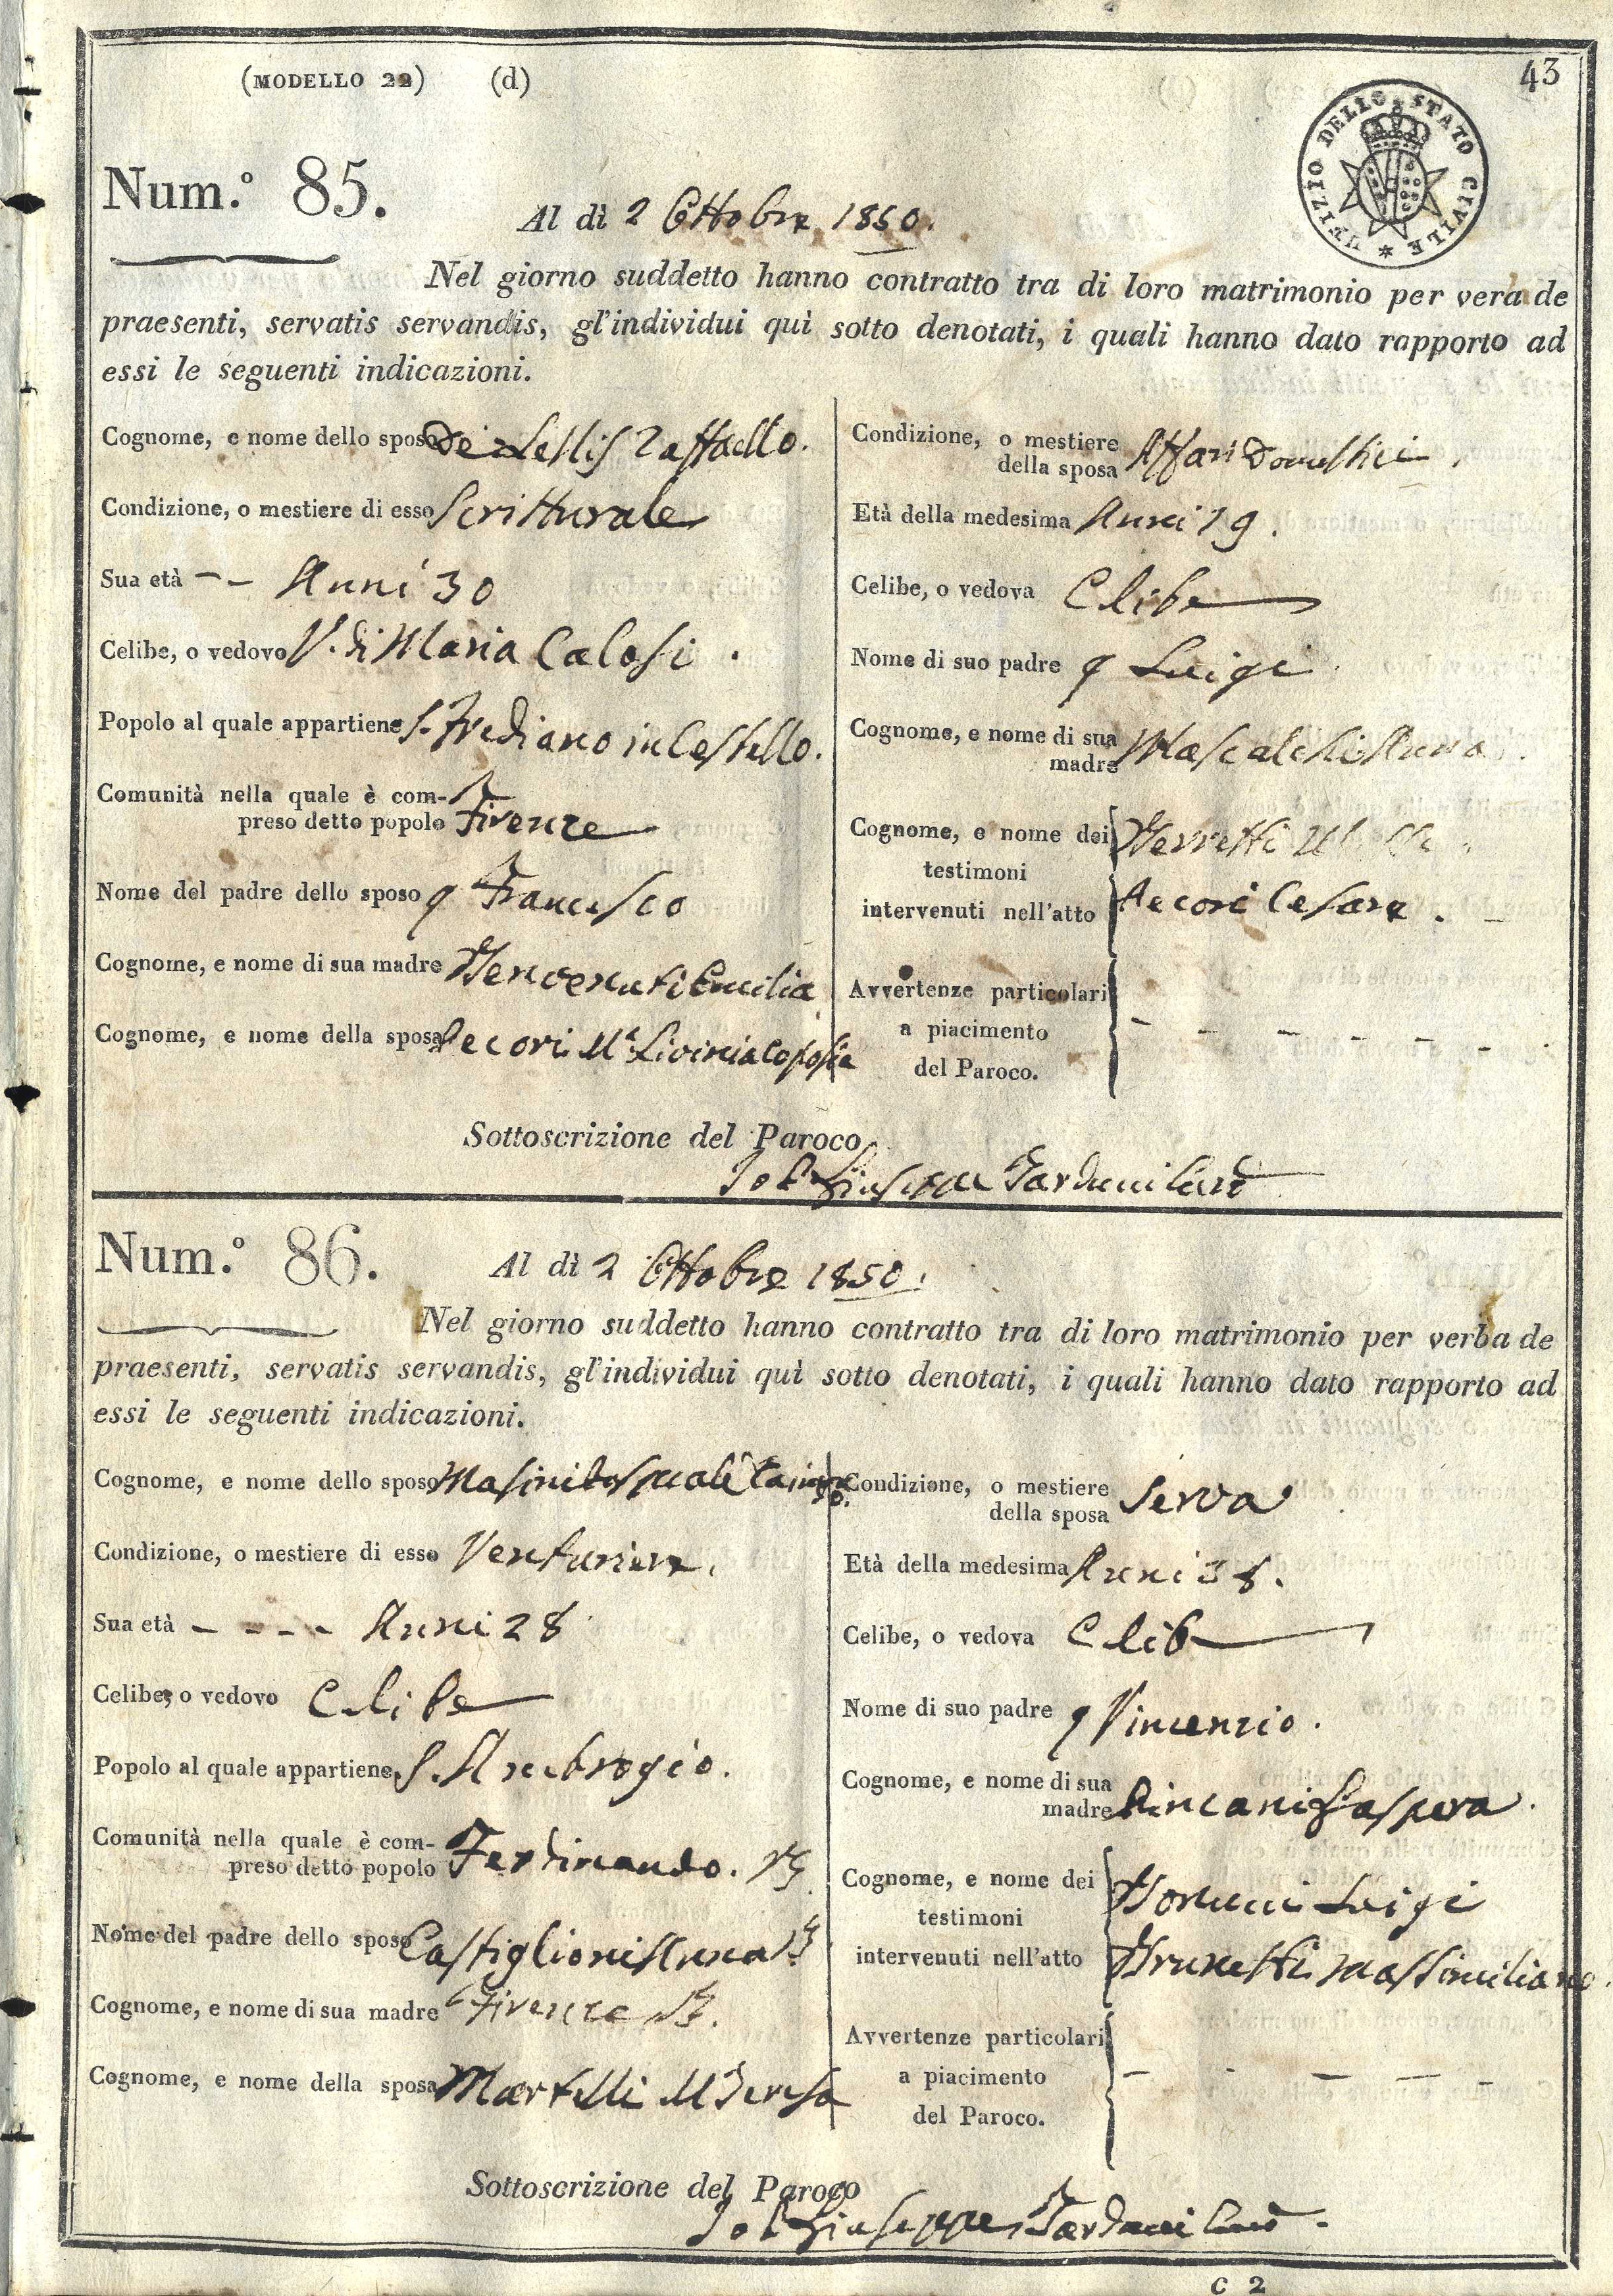 (MODELLO 22) (d)
43
UFIZIO DELLO STATO CIVILE *
Num.° 85.
Al dì 2 Ottobre 1850.
Nel giorno suddetto hanno contratto tra di loro matrimonio per verba de
praesenti, servatis servandis, gl'individui quì sotto denotati, i quali hanno dato rapporto ad
essi le seguenti indicazioni.
Cognome, e nome dello sposo De Lellis Raffaello.
Condizione, o mestiere di esso Scritturale
Sua età -- Anni 30
Celibe, o vedovo V. di Maria Calosi.
Popolo al quale appartiene S. Frediano in Cestello.
Comunità nella quale è com-
preso detto popolo Firenze
Nome del padre dello sposo q Francesco
Cognome, e nome di sua madre Benvenuti Emilia
Cognome, e nome della sposa Pecori Ma.
Condizione, o mestiere
della sposa Affari Domestici.
Età della medesima Anni 19.
Celibe, o vedova Clibe
Nome di suo padre q Luigi
Cognome, e nome di sua
madre Mascalchi Anna.
Cognome, e nome dei
testimoni
intervenuti nell'atto
Berretti
Pecori Cesare. -
Avvertenze particolari
a piacimento
del Paroco.
- - - - - - .
Sottoscrizione del Paroco
Io P. Giuseppe Tarduci
Num.° 86.
Al dì 2 Ottobre 1850.
Nel giorno suddetto hanno contratto tra di loro matrimonio per verba de
praesenti, servatis servandis, gl'individui quì sotto denotati, i quali hanno dato rapporto ad
essi le seguenti indicazioni.
Cognome, e nome dello sposo Masini Pasquale
Condizione, o mestiere di esso Venturiere.
Sua età - - - - Anni 28
Celibe, o vedovo Celibe
Popolo al quale appartiene S. Ambrogio.
Comunità nella quale è com-
preso detto popolo Ferdinando.
Nome del padre dello sposo Castiglioni Anna
Cognome, e nome di sua madre Firenze
Cognome, e nome della sposa Martelli Ma Teresa
Condizione, o mestiere
della sposa Serva
Età della medesima Anni 38.
Celibe, o vedova Clibe
Nome di suo padre q Vincenzio.
Cognome, e nome di sua
madre Bincani Gaspera.
Cognome, e nome dei
testimoni
intervenuti nell'atto
Bonucci Luigi
Brunetti Massimiliano.
Avvertenze particolari
a piacimento
del Paroco.
- - - - - -
Sottoscrizione del Paroco
Io P. Giuseppe Tarduci
C 2